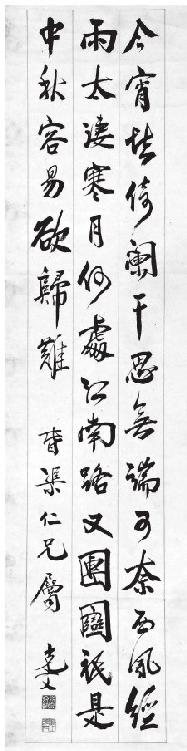 今宵愁倚阑干忍無端可奈西風經
雨太凄寒月何處江南路又團圞祇是
中秋容易欲歸難
晉渠仁兄屬